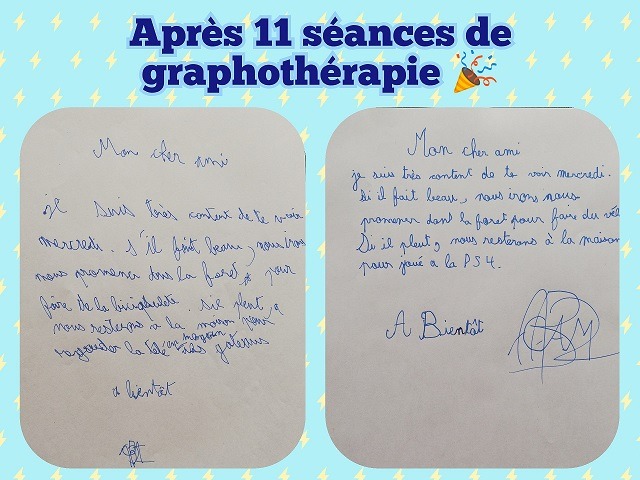 Après 11 séances de
graphothérapie
Mon cher ami
je suis très content de te voir
mercredi. S'il fait beau, nous irons
nous promener dans la foret, pour
faire de la
nous resterons a la maison pour
regarder la télé en
a bientôt
Mon cher ami
je suis très content de te voir mercredi.
Si il fait beau, nous irons nous
promener dans la foret pour faire du vél
Si il pleut, nous resterons à la maison
pour joué a la PS4.
A Bientôt